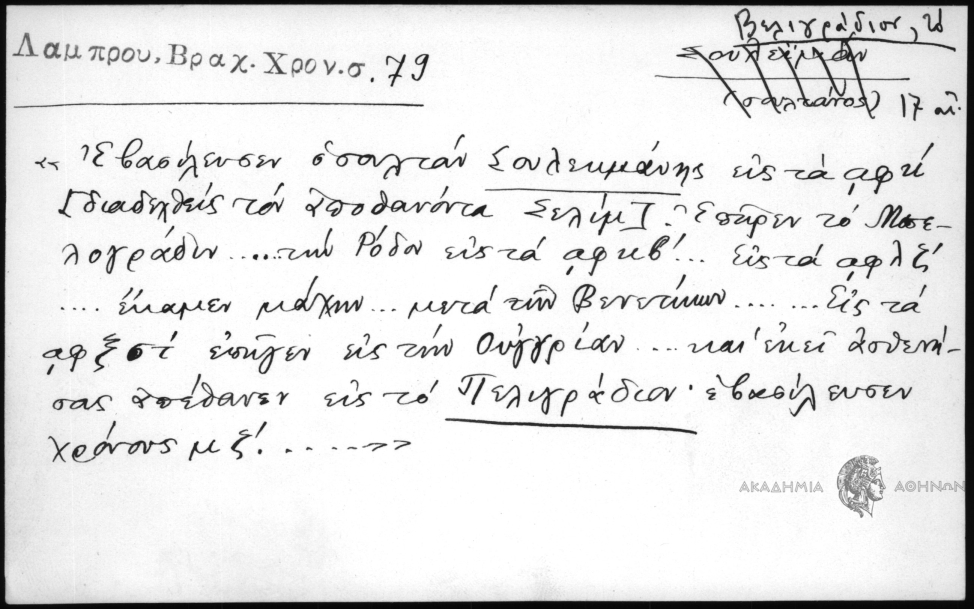 Λαμπρου, Βραχ. Χρον. σ. 79
Βελιγράδιον, τὸ
Σουλεϊμάν
(σουλτάνος) 17 αἰ.
« Ἐβασίλευσεν ὁ σουλτάν Σουλεημάνης εἰς τὰ ͵αφκ΄
[διαδεχθείς τὸν ἀποθανόντα Σελίμ Ι. Ἐπῆρεν τὸ Μπε-
λογράδιν ..... τὴν Ρόδον εἰς τὰ ͵αφκβ΄... Εἰς τὰ ͵αφλζ΄
.... ἔκαμεν μάχην ... μετὰ τῶν Βενετίκων ....... Εἰς τὰ
͵αφξστ΄ ἐπῆγεν εἰς τὴν Οὑγγρίαν .... καὶ ἐκεῖ ἀσθενή-
σας ἀπέθανεν εἰς τὸ Πελιγράδιον· ἐβασίλευσεν
χρόνους μζ΄. ......»
ΑΚΑΔΗΜΙΑ ΑΘΗΝΩΝ